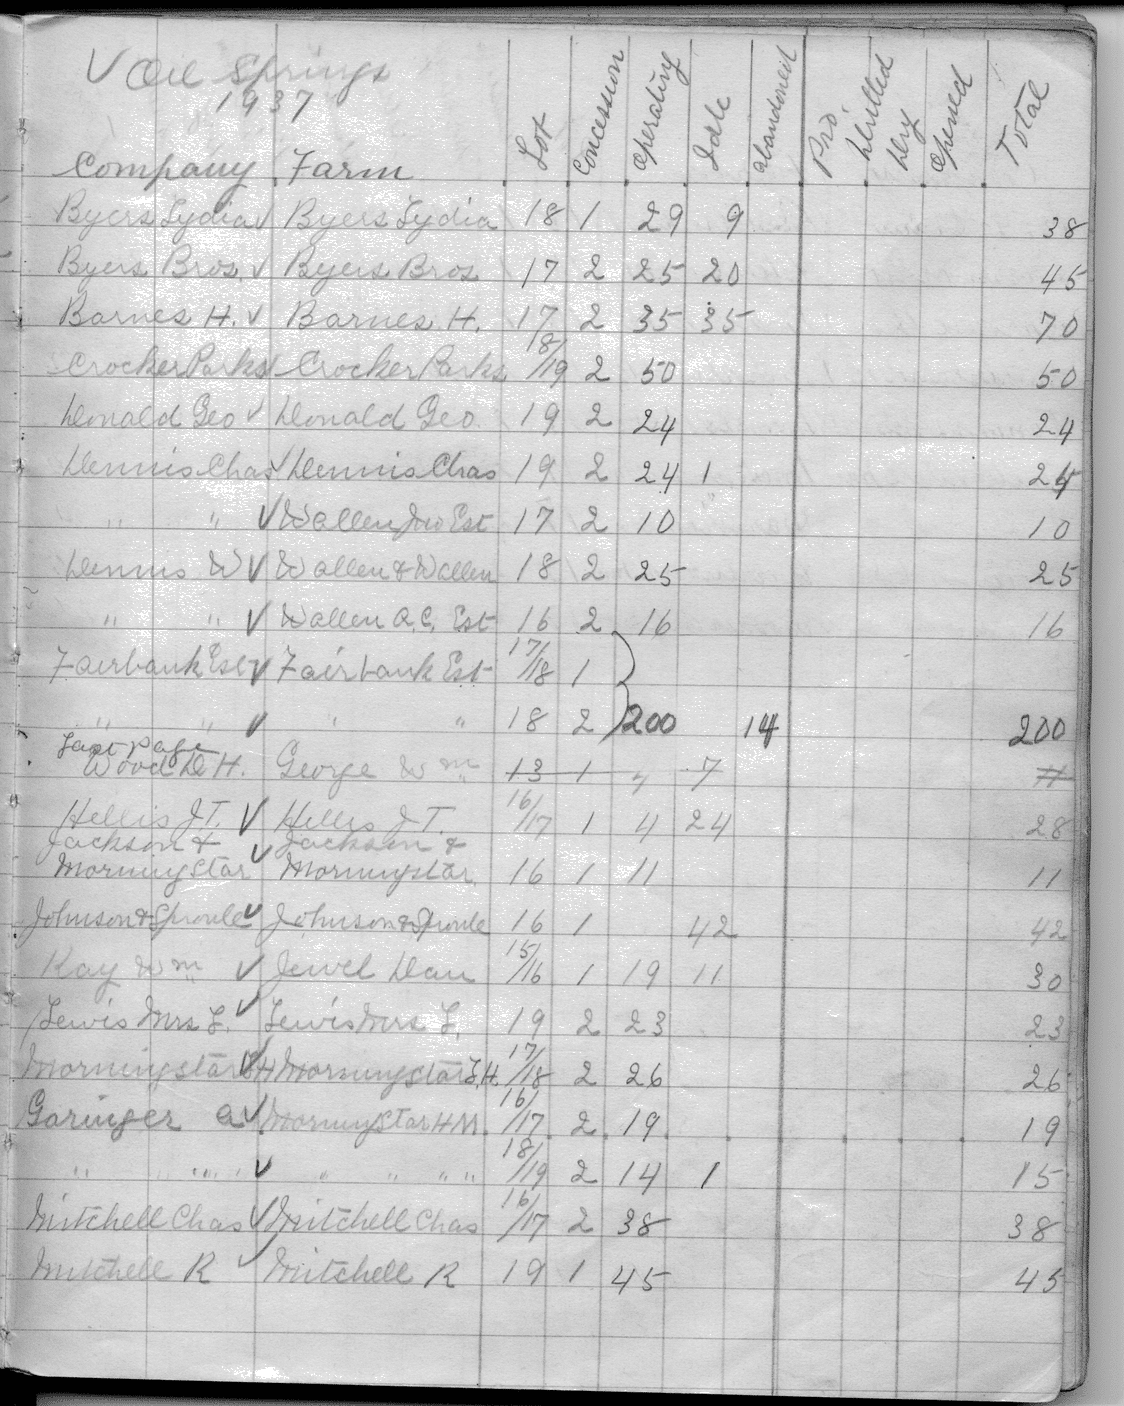 ✓ Oil Springs
1937
Company Farm Lot Concession Operating Idle Abandoned Pro. Drilled Dry Opened Total
Byers Lydia ✓ Byers Lydia 18 1 29 9 38
Byers Bros. ✓ Byers Bros 17 2 25 20 45
Barnes H. ✓ Barnes H. 17 2 35 35 70
Crocker Parks ✓ Crocker Parks 18/19 2 50 50
Donald Geo ✓ Donald Geo. 19 2 24 24
Dennis Chas ✓ Dennis Chas 19 2 24 1
" " ✓ Wallen Jno Est 17 2 10 10
Dennis W ✓ Wallen & Wallen 18 2 25 25
" " ✓ Wallen A.C. Est 16 2 16 16
Fairbank Est ✓ Fairbank Est 17/18 1
" " ✓ " " 18 2 200 14 200
Last page
Wood D H. George Wm 13 1 7
Hellis J.T. ✓ Hellis J.T. 16/17 1 4 24 28
Jackson & ✓ Jackson &
Morningstar Morningstar 16 1 11 11
Johnson & Sproule ✓ Johnson & Sproule 16 1 42 42
Kay Wm ✓ Jewel Dan 15/16 1 19 11 30
Lewis Mrs L. ✓ Lewis Mrs L. 19 2 23 23
Morningstar ✓ Morningstar L.H. 17/18 2 26 26
Garinger A ✓ Morningstar H M. 16/17 2 19 19
" " " ✓ " " " " 18/19 2 14 1 15
Mitchell Chas ✓ Mitchell Chas 16/17 2 38 38
Mitchell R ✓ Mitchell R 19 1 45 45